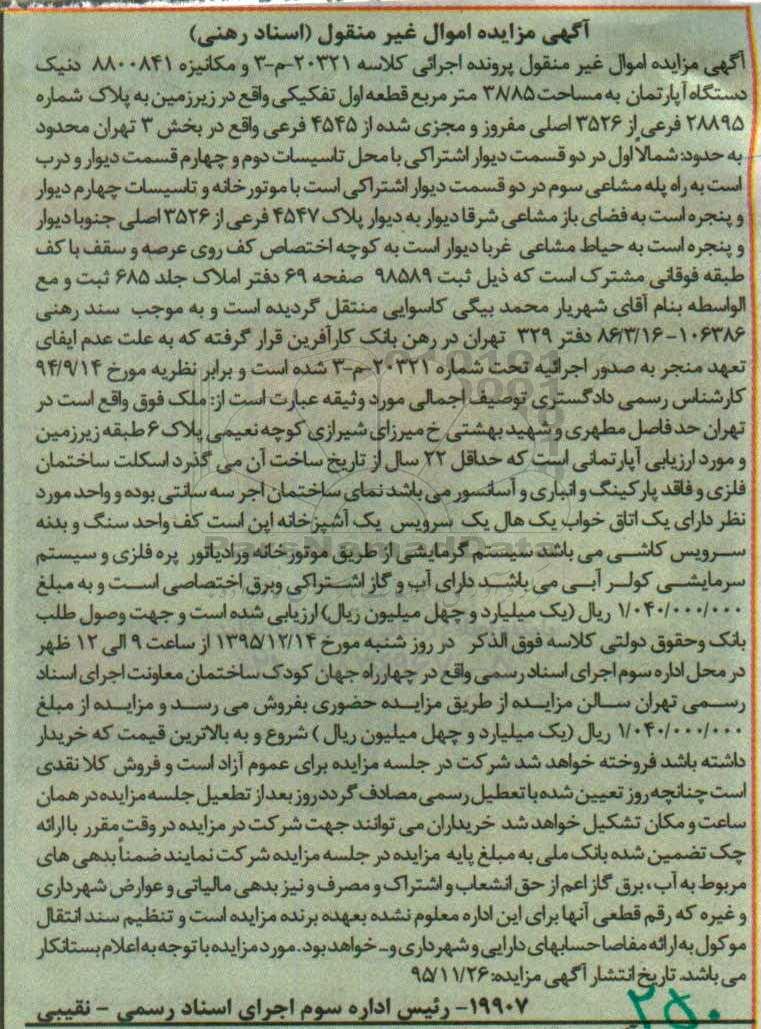 آگهی مزایده اموال غیر منقول (اسناد رهنی)
آگهی مزایده اموال غیر منقول پرونده اجرائی کلاسه ۲۰۳۲۱-م-۳ و مکانیزه ۸۸۰۰۸۴۱ دنیک
دستگاه آپارتمان به مساحت ۳۸/۸۵ متر مربع قطعه اول تفکیکی واقع در زیرزمین به پلاک شماره
۲۸۸۹۵ فرعی از ۳۵۲۶ اصلی مفروز و مجزی شده از ۴۵۴۵ فرعی واقع در بخش ۳ تهران محدود
به حدود: شمالاً اول در دو قسمت دیوار اشتراکی با محل تاسیسات دوم و چهارم قسمت دیوار و درب
است به راه پله مشاعی سوم در دو قسمت دیوار اشتراکی است با موتورخانه و تاسیسات چهارم دیوار
و پنجره است به فضای باز مشاعی شرقا دیوار به دیوار پلاک ۴۵۴۷ فرعی از ۳۵۲۶ اصلی جنوبا دیوار
و پنجره است به حیاط مشاعی غربا دیوار است به کوچه اختصاص کف روی عرصه و سقف با کف
طبقه فوقانی مشترک است که ذیل ثبت ۹۸۵۸۹ صفحه ۶۹ دفتر املاک جلد ۶۸۵ ثبت و مع
الواسطه بنام آقای شهریار محمد بیگی کاسوایی منتقل گردیده است و به موجب سند رهنی
۱۰۶۳۸۶-۸۶/۳/۱۶ دفتر ۳۲۹ تهران در رهن بانک کارآفرین قرار گرفته که به علت عدم ایفای
تعهد منجر به صدور اجرائیه تحت شماره ۲۰۳۲۱-م-۳ شده است و برابر نظریه مورخ ۹۴/۹/۱۴
کارشناس رسمی دادگستری توصیف اجمالی مورد وثیقه عبارت است از: ملک فوق واقع است در
تهران حد فاصل مطهری و شهید بهشتی خ میرزای شیرازی کوچه نعیمی پلاک ۶ طبقه زیرزمین
و مورد ارزیابی آپارتمانی است که حداقل ۲۲ سال از تاریخ ساخت آن می گذرد اسکلت ساختمان
فلزی و فاقد پارکینگ و انباری و آسانسور می باشد نمای ساختمان اجر سه سانتی بوده و واحد مورد
نظر دارای یک اتاق خواب یک هال یک سرویس یک آشپزخانه اپن است کف واحد سنگ و بدنه
سرویس کاشی می باشد سیستم گرمایشی از طریق موتورخانه ورادیاتور پره فلزی و سیستم
سرمایشی کولر آبی می باشد دارای آب و گاز اشتراکی وبرق اختصاصی است و به مبلغ
۱/۰۴۰/۰۰۰/۰۰۰ ریال (یک میلیارد و چهل میلیون ریال) ارزیابی شده است و جهت وصول طلب
بانک وحقوق دولتی کلاسه فوق الذکر در روز شنبه مورخ ۱۳۹۵/۱۲/۱۴ از ساعت ۹ الی ۱۲ ظهر
در محل اداره سوم اجرای اسناد رسمی واقع در چهارراه جهان کودک ساختمان معاونت اجرای اسناد
رسمی تهران سالن مزایده از طریق مزایده حضوری بفروش می رسد و مزایده از مبلغ
۱/۰۴۰/۰۰۰/۰۰۰ ریال (یک میلیارد و چهل میلیون ریال ) شروع و به بالاترین قیمت که خریدار
داشته باشد فروخته خواهد شد شرکت در جلسه مزایده برای عموم آزاد است و فروش کلا نقدی
است چنانچه روز تعیین شده با تعطیل رسمی مصادف گردد روز بعد از تطعیل جلسه مزایده در همان
ساعت و مکان تشکیل خواهد شد خریداران می توانند جهت شرکت در مزایده در وقت مقرر با ارائه
چک تضمین شده بانک ملی به مبلغ پایه مزایده در جلسه مزایده شرکت نمایند ضمناً بدهی های
مربوط به آب، برق گاز اعم از حق انشعاب و اشتراک و مصرف و نیز بدهی مالیاتی و عوارض شهرداری
و غیره که رقم قطعی آنها برای این اداره معلوم نشده بعهده برنده مزایده است و تنظیم سند انتقال
موکول به ارائه مفاصا حسابهای دارایی و شهرداری و... خواهد بود. مورد مزایده با توجه به اعلام بستانکار
می باشد. تاریخ انتشار آگهی مزایده: ۹۵/۱۱/۲۶
۱۹۹۰۷- رئیس اداره سوم اجرای اسناد رسمی - نقیبی
۲۵۰